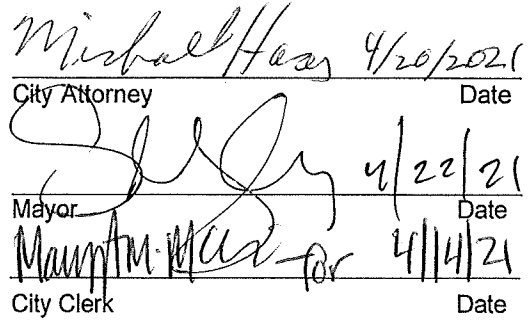 Michael Haas 4/20/2021
City Attorney Date
4/22/21
Mayor Date
for 4/14/21
City Clerk Date